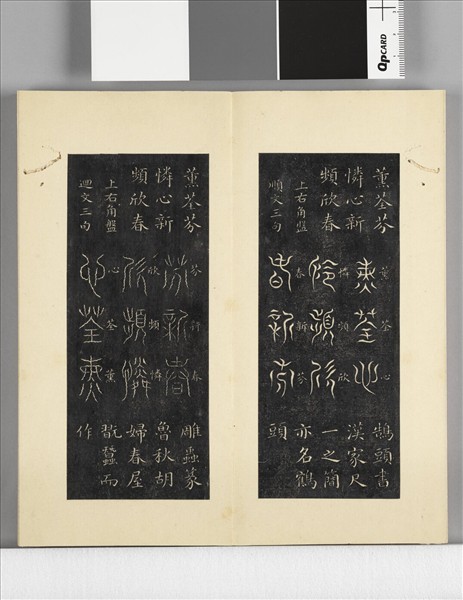 QpCARD
薰荃芬
憐心新
頻欣春
上右角盤
順文三句
薰荃心
憐頻欣
春新芬
鵠頭書
漢家尺
一之簡
亦名鶴
頭
薰荃芬
憐心新
頻欣春
上右角盤
迴文三句
芬新春
欣頻憐
心荃薰
雕蟲篆
魯秋胡
婦春居
翫蠶而
作